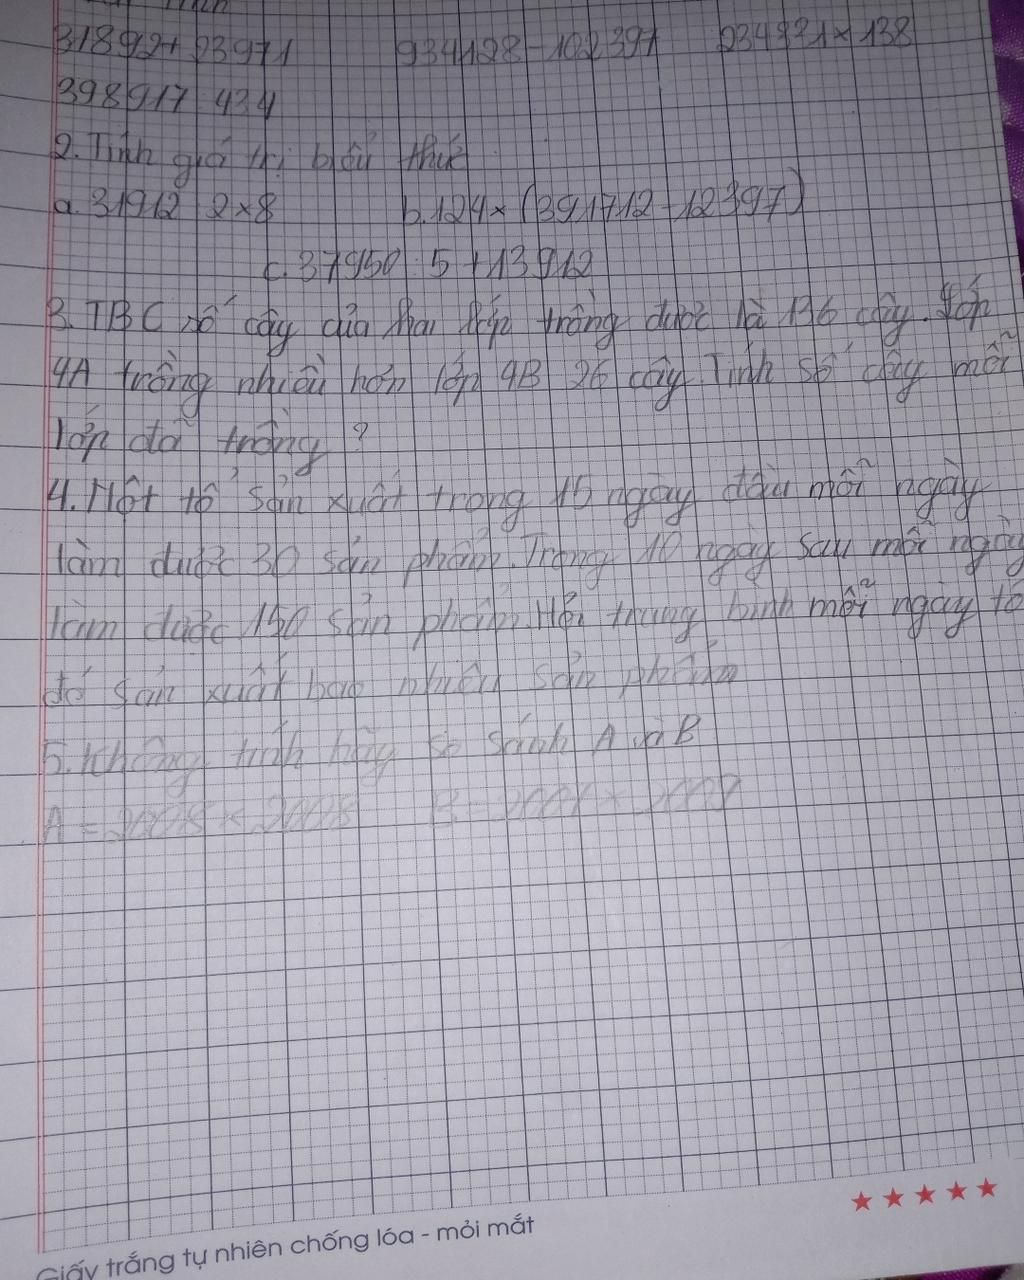 31892 + 23971 934128 - 102391 234931 × 138
398917 : 434
2. Tính giá trị biểu thức
a. 31912 : 2 × 8 b. 124 × (391712 - 12397)
c. 37950 : 5 + 13912
3. TBC số cây của hai lớp trồng được là 136 cây. Lớp
4A trồng nhiều hơn lớp 4B 26 cây. Tính số cây mỗi
lớp đã trồng ?
4. Một tổ sản xuất trong 15 ngày đầu mỗi ngày
làm được 30 sản phẩm. Trong 10 ngày sau mỗi ngày
làm được 150 sản phẩm. Hỏi trung bình mỗi ngày tổ
đó sản xuất bao nhiêu sản phẩm
5. Không tính hãy so sánh A và B
A = 2008 × 2008 B =
Giấy trắng tự nhiên chống lóa - mỏi mắt